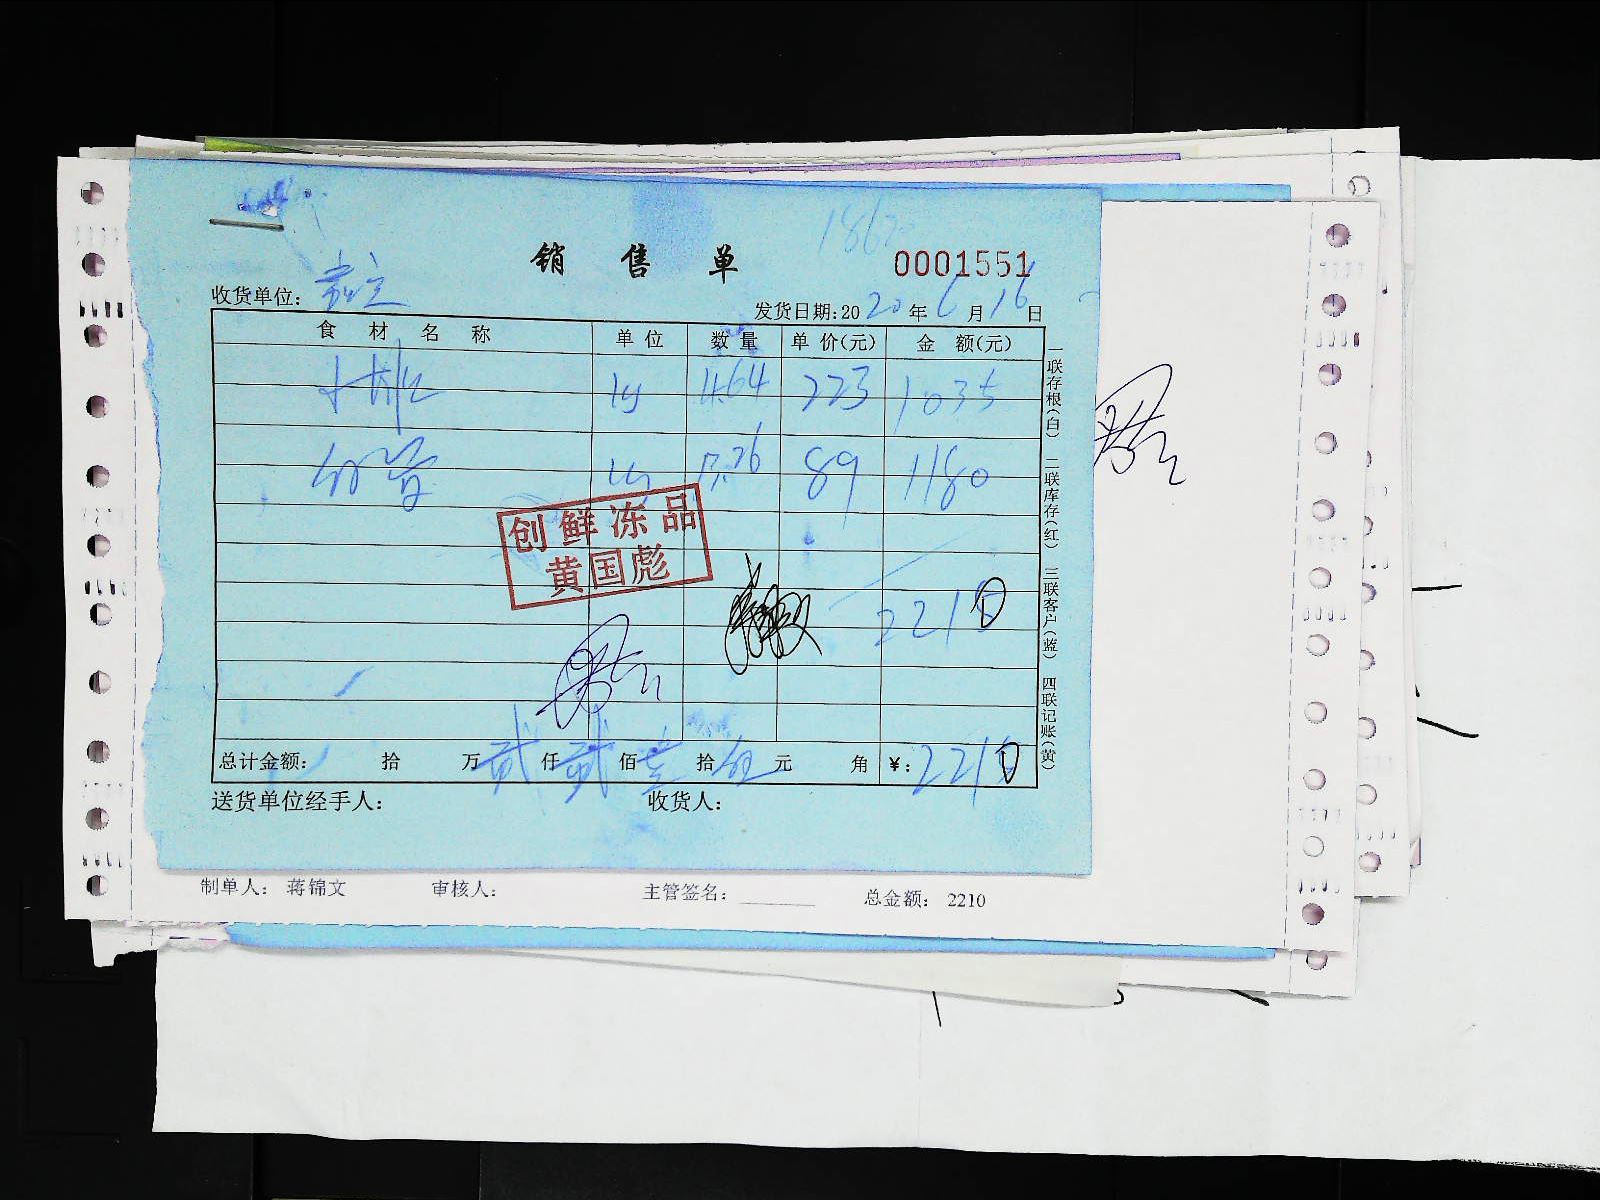 销售单
0001551
收货单位：
发货日期:2020年6月16日
食材名称 单位 数量 单价(元) 金额(元)
4.64 223 1035
89 1180
创鲜冻品
黄国彪
2210
总计金额： 拾 万贰仟贰佰壹拾伍元 角 ¥：2210
送货单位经手人： 收货人：
一联存根(白) 二联库存(红) 三联客户(蓝) 四联记账(黄)
制单人： 蒋锦文 审核人： 主管签名： 总金额： 2210